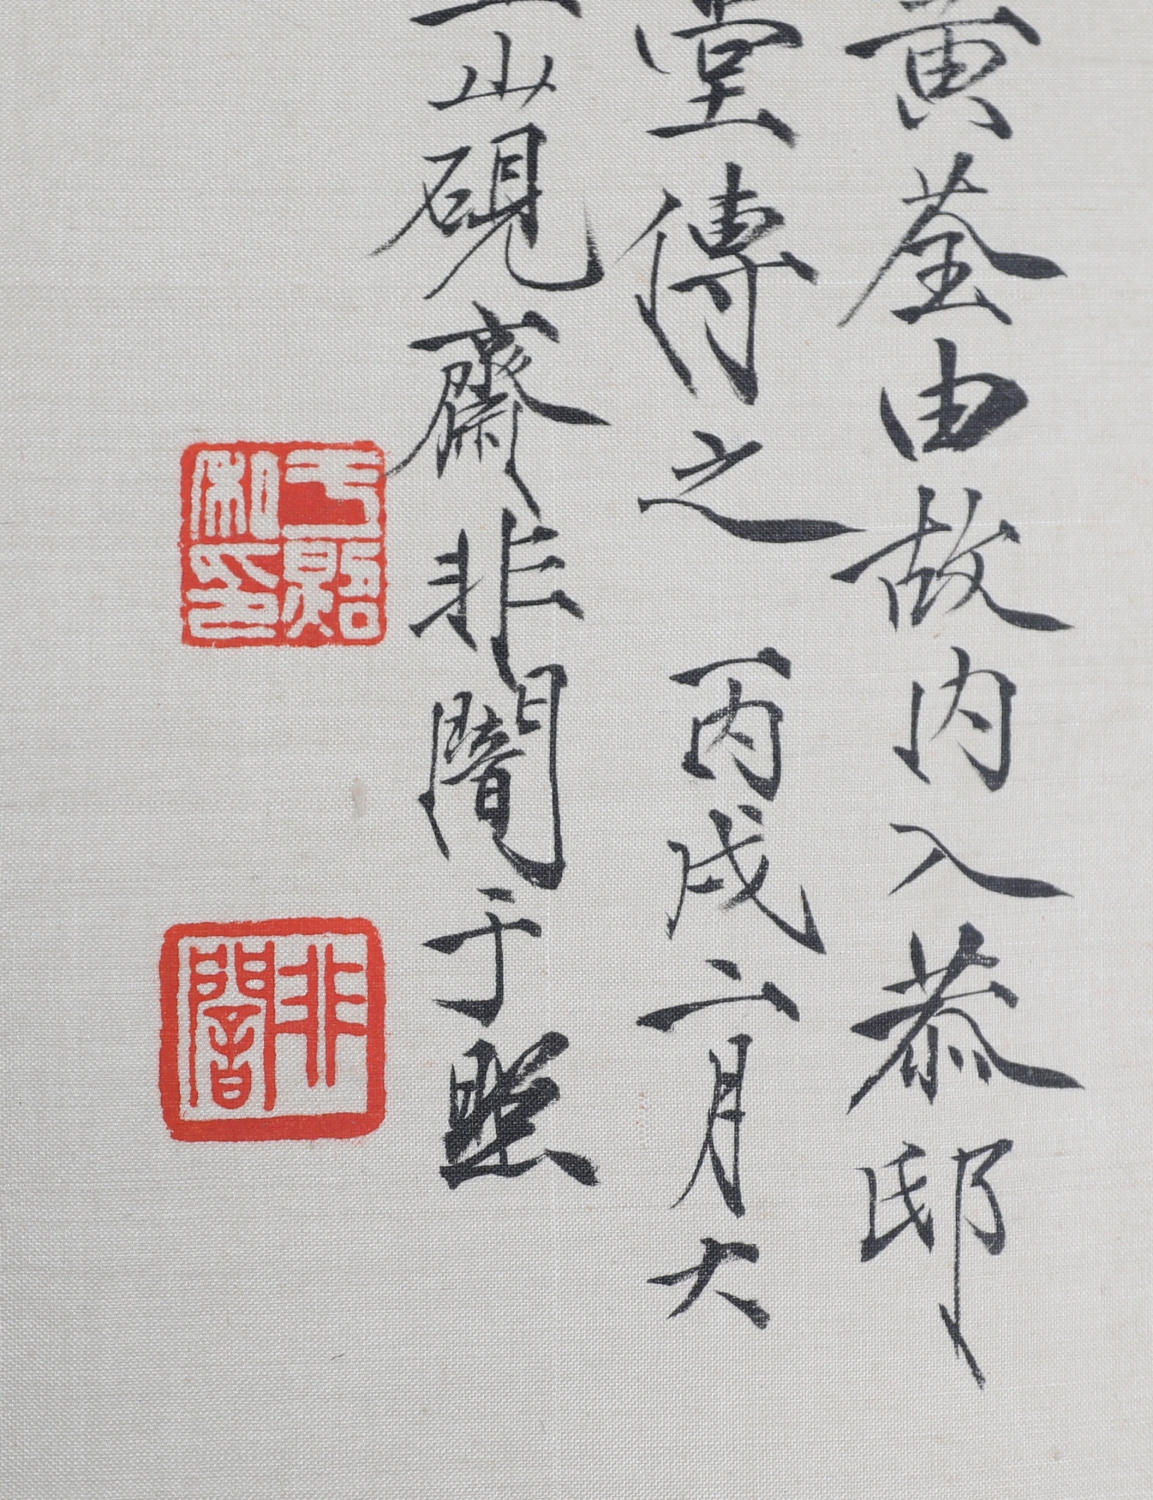 黃荃由故內入恭邸
堂傳之 丙戌二月大
山硯齋非闇于照
于照私印
非闇